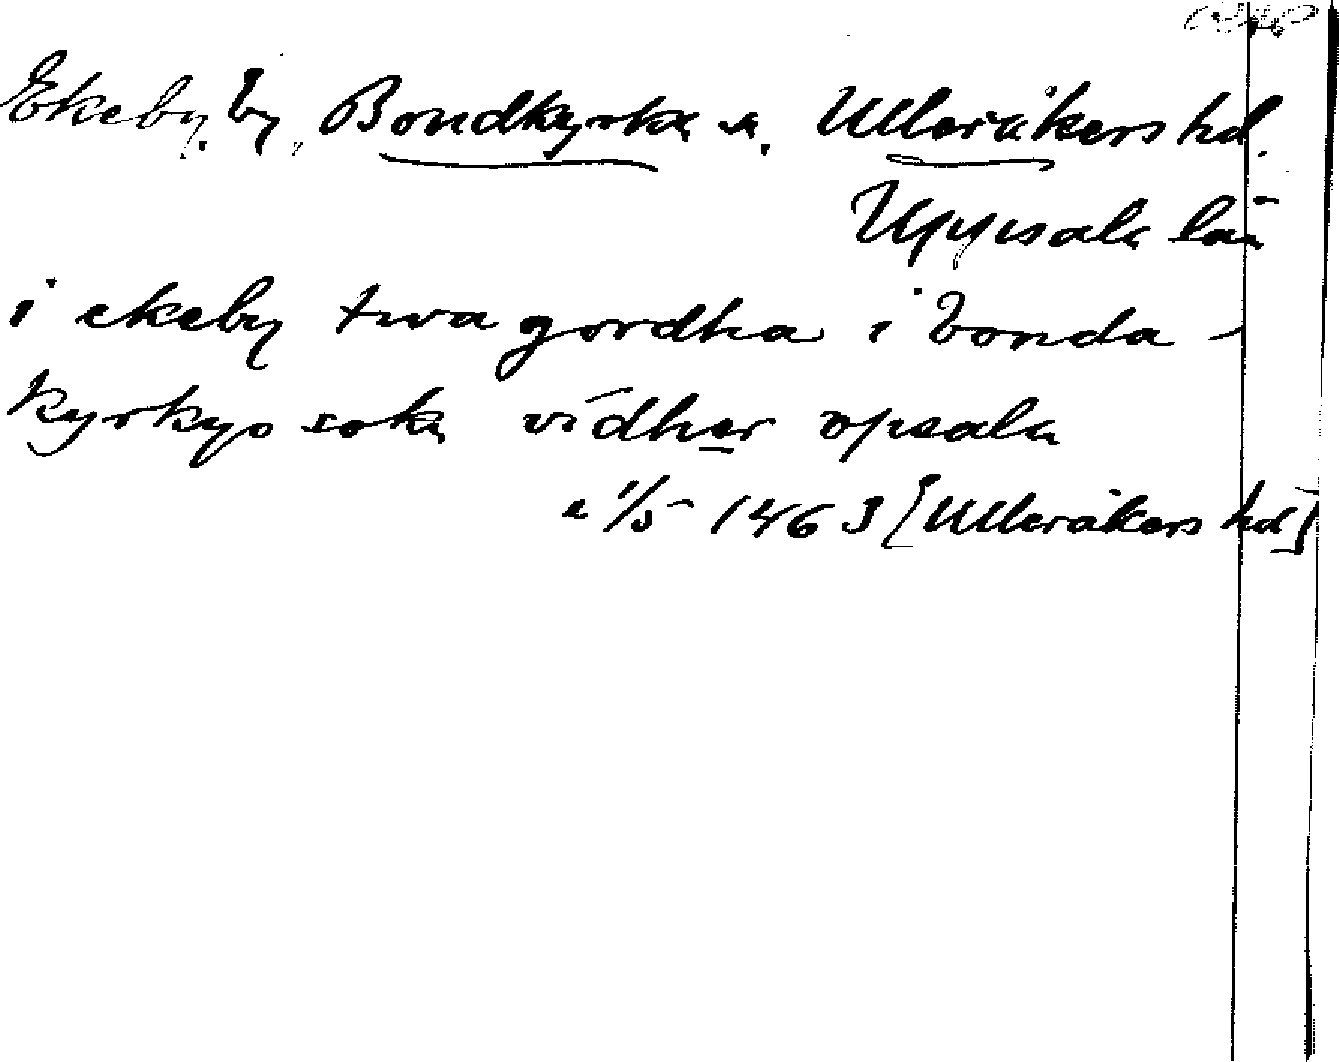 Ekeby, by, Bondkyrka sn, Ulleråkers hd.
Uppsala län
i ekeby twa gordha i bonda-
kyrkyo sokn vidher opsala
1/5 1463 [Ulleråkers hd]